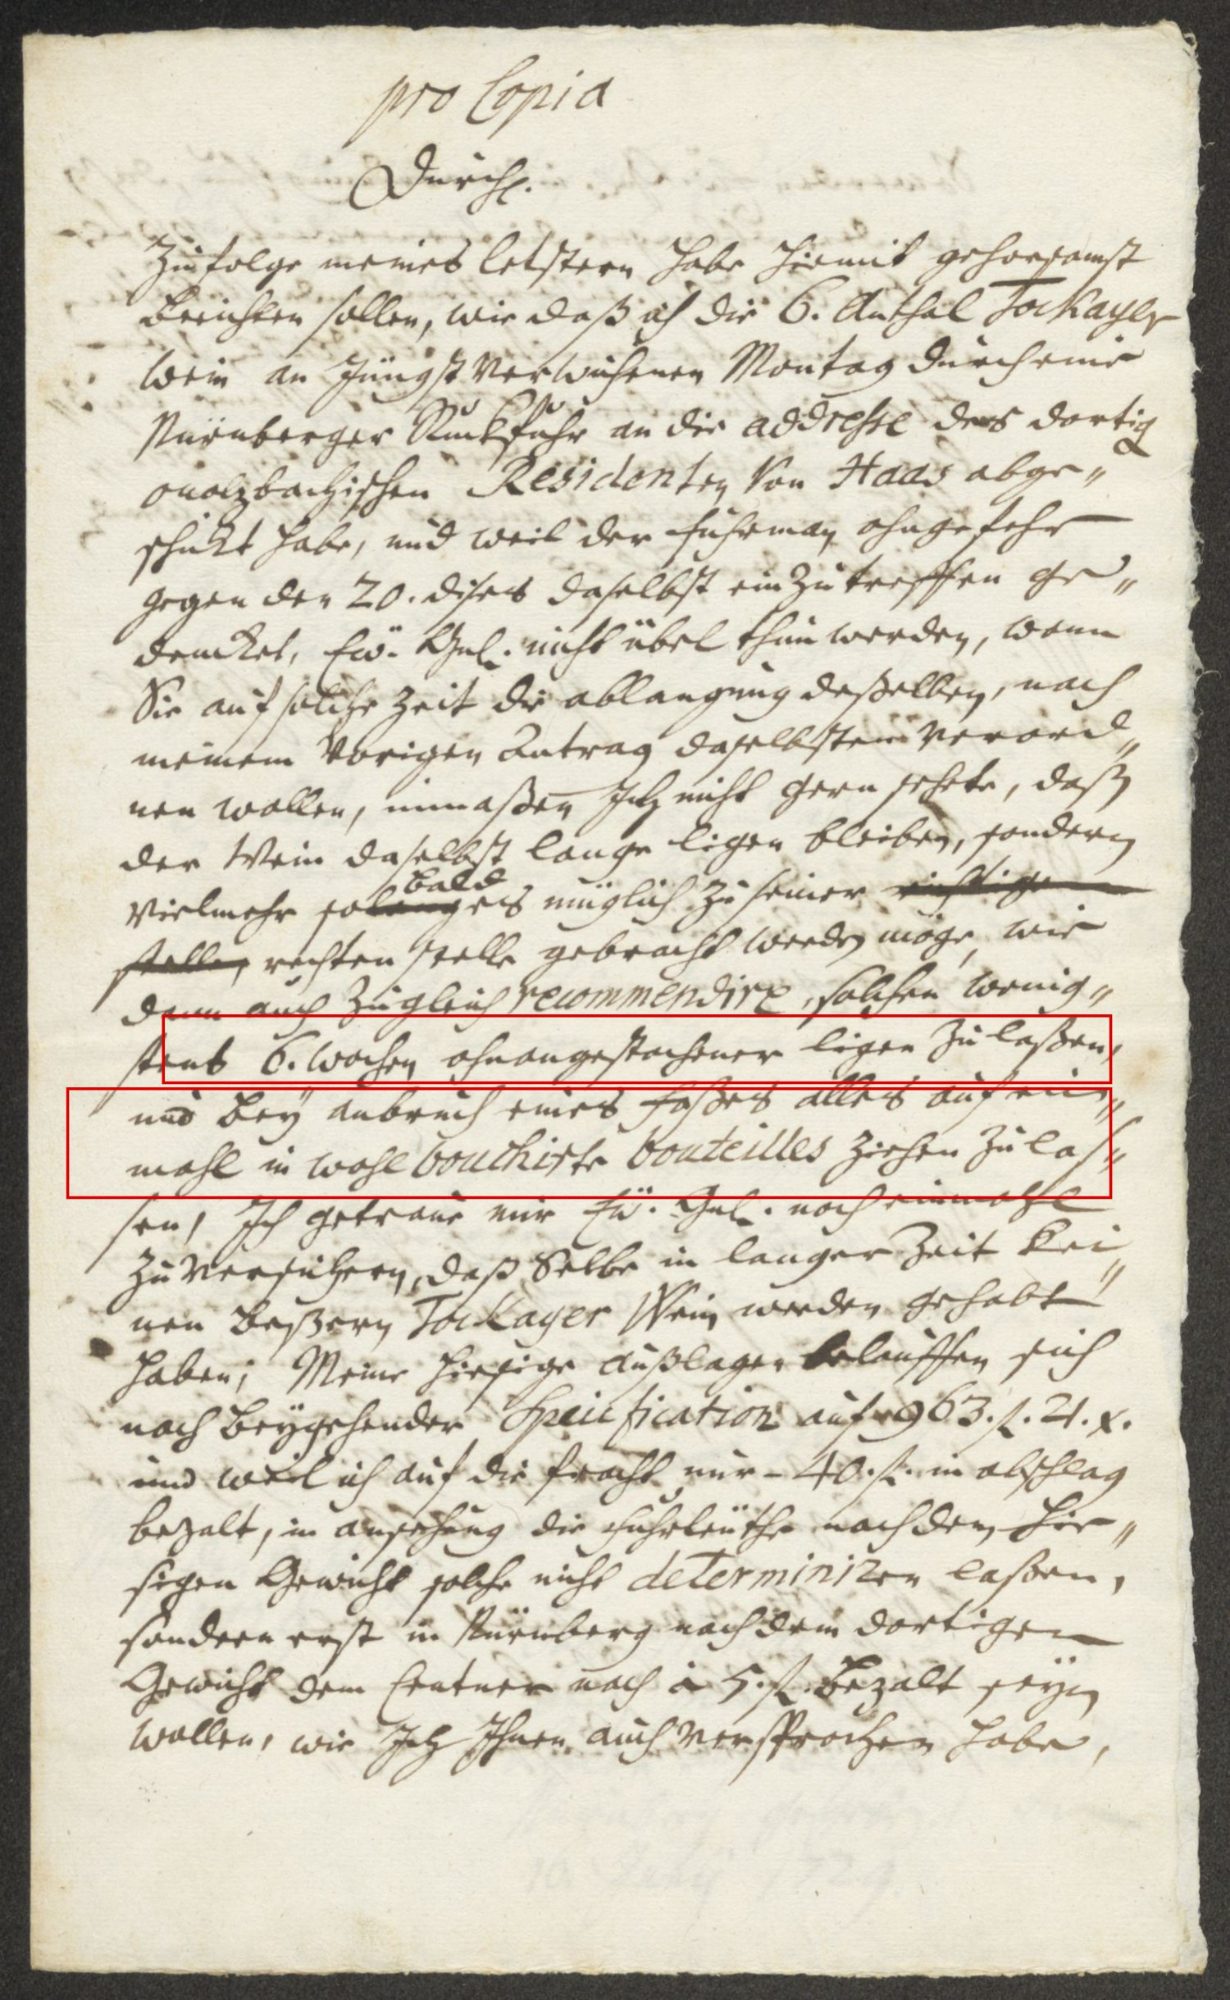 pro Copia
Durchl.
Zufolge meines letstern habe hiemit gehorsamst
berichten sollen, wie daß ich die 6. Anthal Tockayer
wein an jüngst verwichenen Montag durch eine
Nürnberger Ruckfuhr an die addresse des dortig
onolzbachischen Residenten von Haas abge„
schickt habe, und weil der fuhrman ohngefehr
gegen den 20. dises daselbst einzutreffen ge„
dencket, Ew. Gnl. nicht übel thun werden, wenn
Sie auf solche Zeit die ablangung deßelben, nach
meinem vorigen Antrag daselbsten verord„
nen wollen, immaßen Ich nicht gern sehete, daß
der Wein daselbst lange ligen bleiben, sondern
bald
vielmehr so als müglich zu seiner richtigen
stelle, rechten stelle gebracht werden möge, wie
dann auch zugleich recommendire, solchen wenig„
stens 6. wochen ohnangestochener ligen zu laßen,
und bey anbruch eines faßes alles auf ein„
mahl in wohl bouchirte bouteilles ziehen zu las„
sen, Ich getraue mir Ew. Gnl. noch einmahl
zu versichern, daß Selbe in langer Zeit kei„
nen beßern Tockayer Wein werden gehabt
haben; Meine hiesige außlagen belauffen sich
nach beygehender Specification auf 963. f. 21. x.
und weil ich auf die fracht nur - 40. f. in abschlag
bezalt, in ansehung die fuhrleuthe nach dem hie„
sigen Gewicht solche nicht determiniren laßen,
sondern erst in Nürnberg nach dem dortigen
Gewicht dem Centner nach à 5. f. bezalt seyn
wollen, wie Ich Ihnen auch versprochen habe,